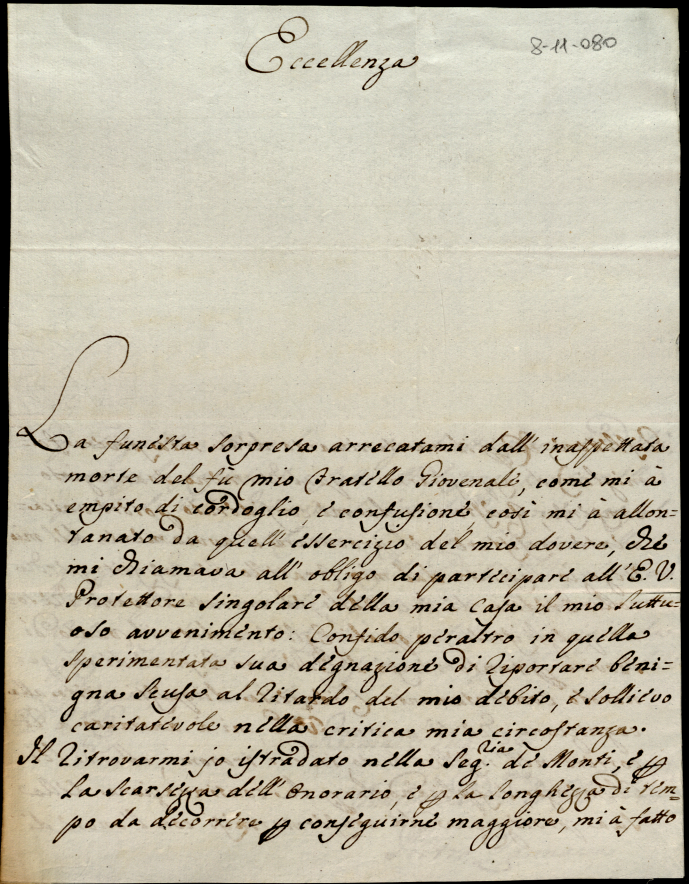 8-11-080
Eccellenza
La funesta sorpresa arrecatami dall' inaspettata
morte del fù mio Fratello Giovenale, come mi à
empito di cordoglio, è confusione, così mi à allon=
tanato da quell' essercizio del mio dovere, che
mi chiamava all' obligo di participare all' E. V.
Protettore singolare della mia Casa il mio luttu=
oso avvenimento: Confido peraltro in quella
sperimentata sua degnazione di riportare beni=
gna scusa al ritardo del mio debito, è sollievo
caritatevole nella critica mia circostanza.
Il ritrovarmi jo istradato nella Seg.ria de Monti, è p
la scarsezza dell' Onorario, è p la longhezza di tem=
po da decorrere p conseguirne maggiore, mi à fatto